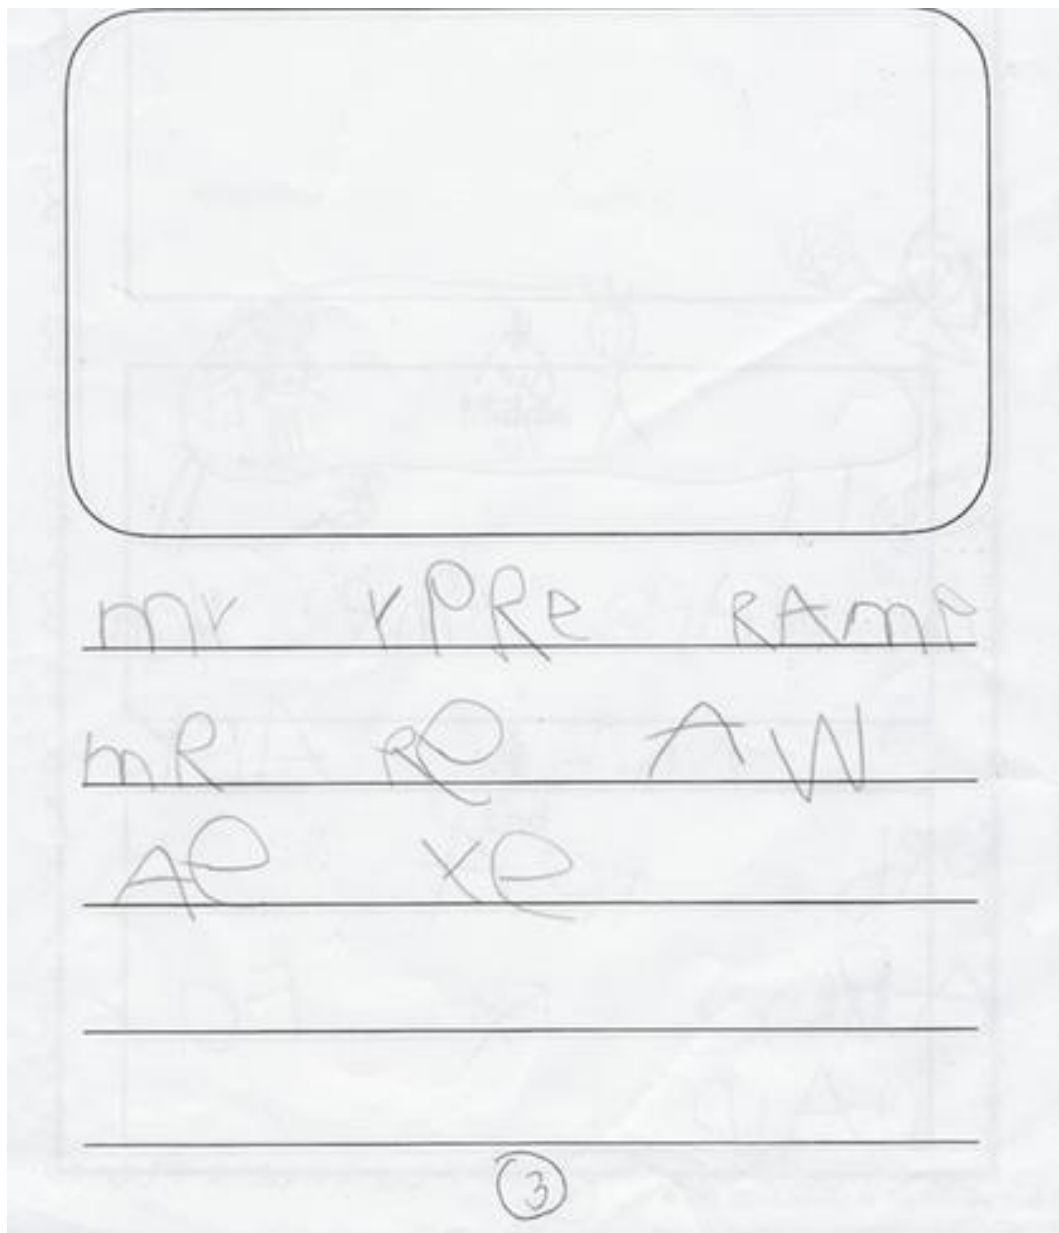 mr rPRe RAmP
mR Re AW
Ae Xe
3